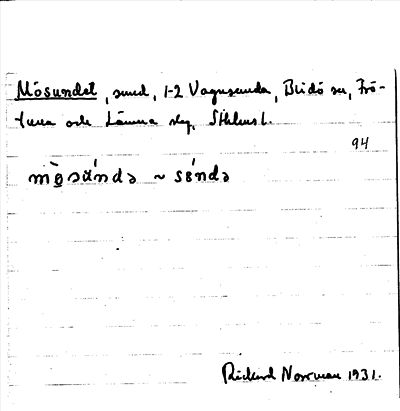 Mösundet, sund, 1-2 Vagnsunda, Blidö sn, Frö-
tuna och Länna slg, Sthlms l.
94
mö̀sún̄də ~ sún̄də
Rickard Norrman 1931.